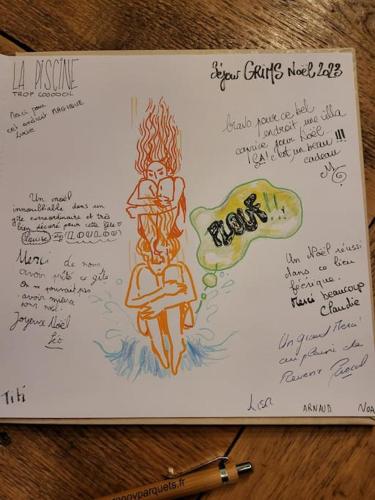 LA PISCINE
TROP COOOOOL
Merci pour
cet endroit MAGIQUE
Louise
Séjour GRIMS Noël 2023
bravo pour ce bel
endroit, une villa
pour Noël
ÇA! c'est un beau !!!
cadeau
M
PLOUF!!!
Un noël
inoubliable dans un
gîte extraordinaire et très
bien décoré pour cette fête
Louise
Merci de nous
avoir prêté ce gîte
On ne pouvait pas
avoir mieux
pour noël.
Joyeux Noël
Un Noël réussi
dans ce lieu
féérique.
Merci beaucoup
Claudie
Un grand Merci
au plaisir de
Revenir Pascal
Titi
Lisa
ARNAUD
NOA
parquets.fr